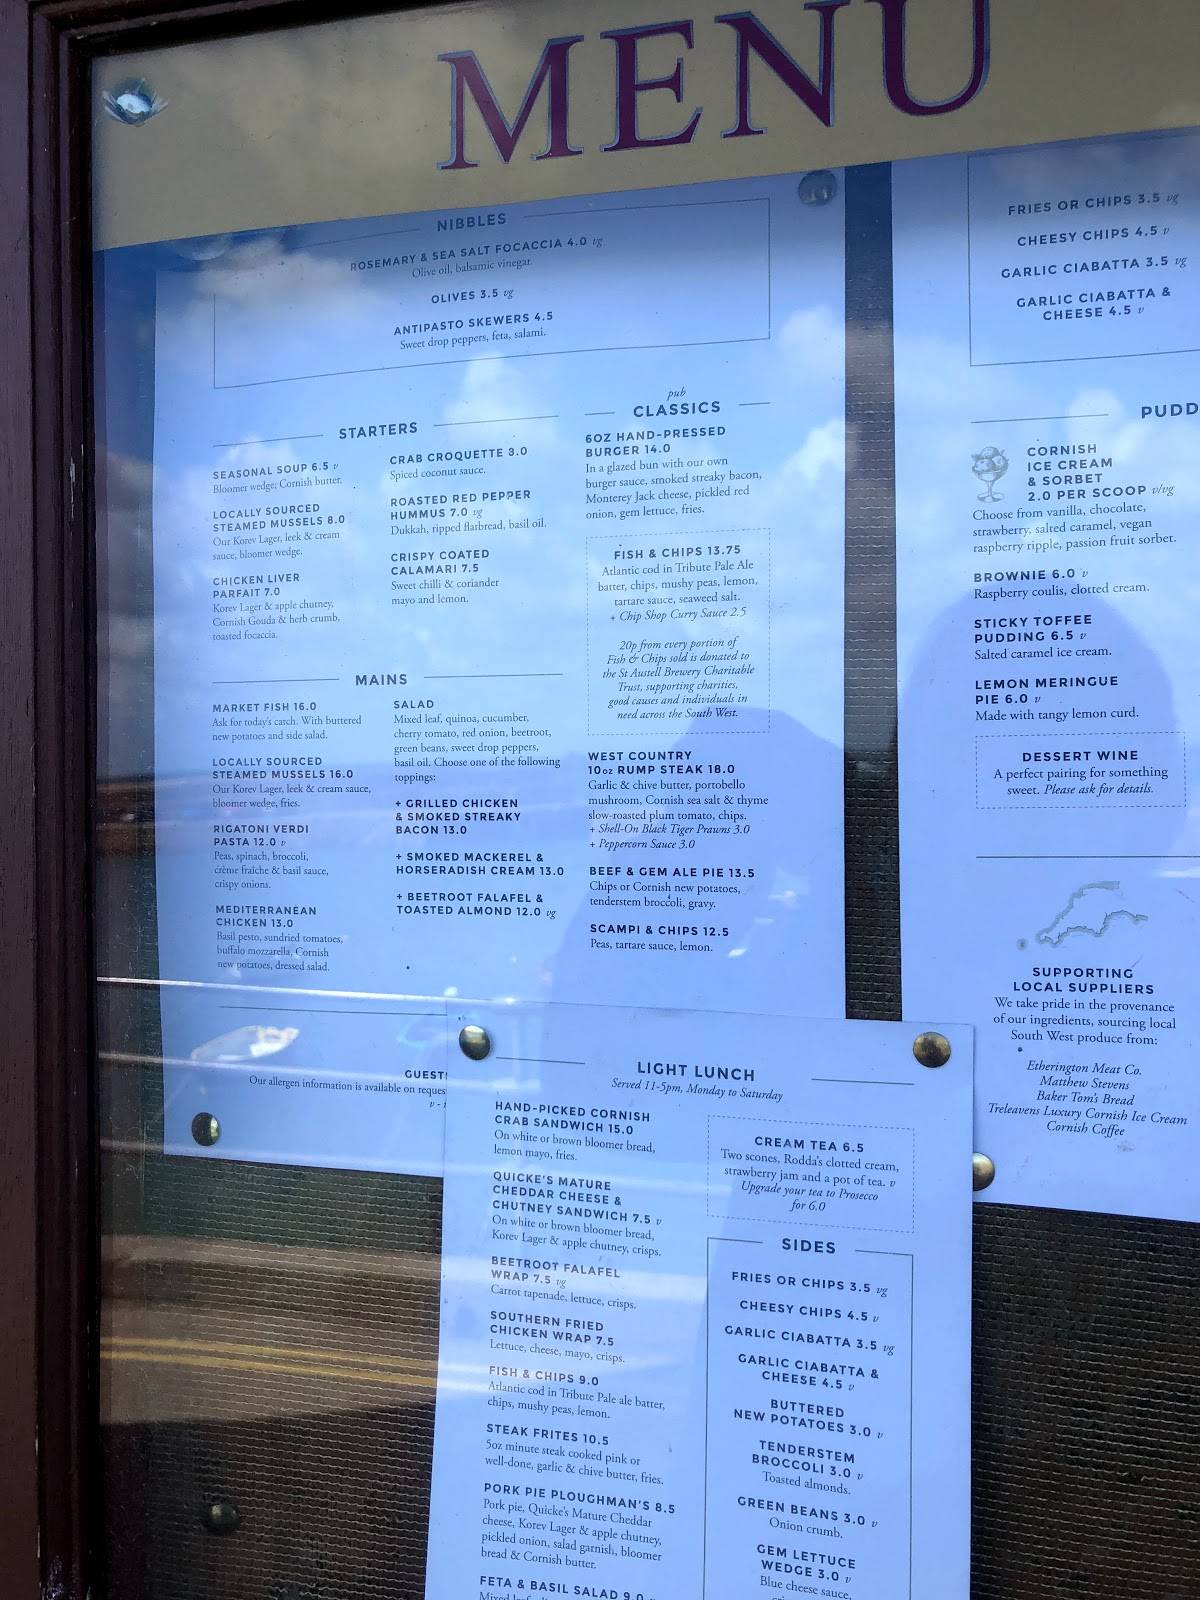 MENU
NIBBLES
ROSEMARY & SEA SALT FOCACCIA 4.0 vg
Olive oil, balsamic vinegar.
OLIVES 3.5 vg
ANTIPASTO SKEWERS 4.5
Sweet drop peppers, feta, salami.
STARTERS
SEASONAL SOUP 6.5 v
Bloomer wedge, Cornish butter.
LOCALLY SOURCED
STEAMED MUSSELS 8.0
Our Korev Lager, leek & cream
sauce, bloomer wedge.
CHICKEN LIVER
PARFAIT 7.0
Korev Lager & apple chutney,
Cornish Gouda & herb crumb,
toasted focaccia.
CRAB CROQUETTE 8.0
Spiced coconut sauce.
ROASTED RED PEPPER
HUMMUS 7.0 vg
Dukkah, ripped flatbread, basil oil.
CRISPY COATED
CALAMARI 7.5
Sweet chilli & coriander
mayo and lemon.
MAINS
MARKET FISH 16.0
Ask for today's catch. With buttered
new potatoes and side salad.
LOCALLY SOURCED
STEAMED MUSSELS 16.0
Our Korev Lager, leek & cream sauce,
bloomer wedge, fries.
RIGATONI VERDI
PASTA 12.0 v
Peas, spinach, broccoli,
crème fraîche & basil sauce,
crispy onions.
MEDITERRANEAN
CHICKEN 13.0
Basil pesto, sundried tomatoes,
buffalo mozzarella, Cornish
new potatoes, dressed salad.
SALAD
Mixed leaf, quinoa, cucumber,
cherry tomato, red onion, beetroot,
green beans, sweet drop peppers,
basil oil. Choose one of the following
toppings:
+ GRILLED CHICKEN
& SMOKED STREAKY
BACON 13.0
+ SMOKED MACKEREL &
HORSERADISH CREAM 13.0
+ BEETROOT FALAFEL &
TOASTED ALMOND 12.0 vg
pub
CLASSICS
6OZ HAND-PRESSED
BURGER 14.0
In a glazed bun with our own
burger sauce, smoked streaky bacon,
Monterey Jack cheese, pickled red
onion, gem lettuce, fries.
FISH & CHIPS 13.75
Atlantic cod in Tribute Pale Ale
batter, chips, mushy peas, lemon,
tartare sauce, seaweed salt.
+ Chip Shop Curry Sauce 2.5
20p from every portion of
Fish & Chips sold is donated to
the St Austell Brewery Charitable
Trust, supporting charities,
good causes and individuals in
need across the South West.
WEST COUNTRY
10oz RUMP STEAK 18.0
Garlic & chive butter, portobello
mushroom, Cornish sea salt & thyme
slow-roasted plum tomato, chips.
+ Shell-On Black Tiger Prawns 3.0
+ Peppercorn Sauce 3.0
BEEF & GEM ALE PIE 13.5
Chips or Cornish new potatoes,
tenderstem broccoli, gravy.
SCAMPI & CHIPS 12.5
Peas, tartare sauce, lemon.
GUEST
Our allergen information is available on reques
v -
FRIES OR CHIPS 3.5 vg
CHEESY CHIPS 4.5 v
GARLIC CIABATTA 3.5 vg
GARLIC CIABATTA &
CHEESE 4.5 v
PUDD
CORNISH
ICE CREAM
& SORBET
2.0 PER SCOOP v/vg
Choose from vanilla, chocolate,
strawberry, salted caramel, vegan
raspberry ripple, passion fruit sorbet.
BROWNIE 6.0 v
Raspberry coulis, clotted cream.
STICKY TOFFEE
PUDDING 6.5 v
Salted caramel ice cream.
LEMON MERINGUE
PIE 6.0 v
Made with tangy lemon curd.
DESSERT WINE
A perfect pairing for something
sweet. Please ask for details.
SUPPORTING
LOCAL SUPPLIERS
We take pride in the provenance
of our ingredients, sourcing local
South West produce from:
Etherington Meat Co.
Matthew Stevens
Baker Tom's Bread
Treleavens Luxury Cornish Ice Cream
Cornish Coffee
LIGHT LUNCH
Served 11-5pm, Monday to Saturday
HAND-PICKED CORNISH
CRAB SANDWICH 15.0
On white or brown bloomer bread,
lemon mayo, fries.
QUICKE'S MATURE
CHEDDAR CHEESE &
CHUTNEY SANDWICH 7.5 v
On white or brown bloomer bread,
Korev Lager & apple chutney, crisps.
BEETROOT FALAFEL
WRAP 7.5 vg
Carrot tapenade, lettuce, crisps.
SOUTHERN FRIED
CHICKEN WRAP 7.5
Lettuce, cheese, mayo, crisps.
FISH & CHIPS 9.0
Atlantic cod in Tribute Pale ale batter,
chips, mushy peas, lemon.
STEAK FRITES 10.5
5oz minute steak cooked pink or
well-done, garlic & chive butter, fries.
PORK PIE PLOUGHMAN'S 8.5
Pork pie, Quicke's Mature Cheddar
cheese, Korev Lager & apple chutney,
pickled onion, salad garnish, bloomer
bread & Cornish butter.
FETA & BASIL SALAD 9.0
CREAM TEA 6.5
Two scones, Rodda's clotted cream,
strawberry jam and a pot of tea. v
Upgrade your tea to Prosecco
for 6.0
SIDES
FRIES OR CHIPS 3.5 vg
CHEESY CHIPS 4.5 v
GARLIC CIABATTA 3.5 vg
GARLIC CIABATTA &
CHEESE 4.5 v
BUTTERED
NEW POTATOES 3.0 v
TENDERSTEM
BROCCOLI 3.0 v
Toasted almonds.
GREEN BEANS 3.0 v
Onion crumb.
GEM LETTUCE
WEDGE 3.0 v
Blue cheese sauce,